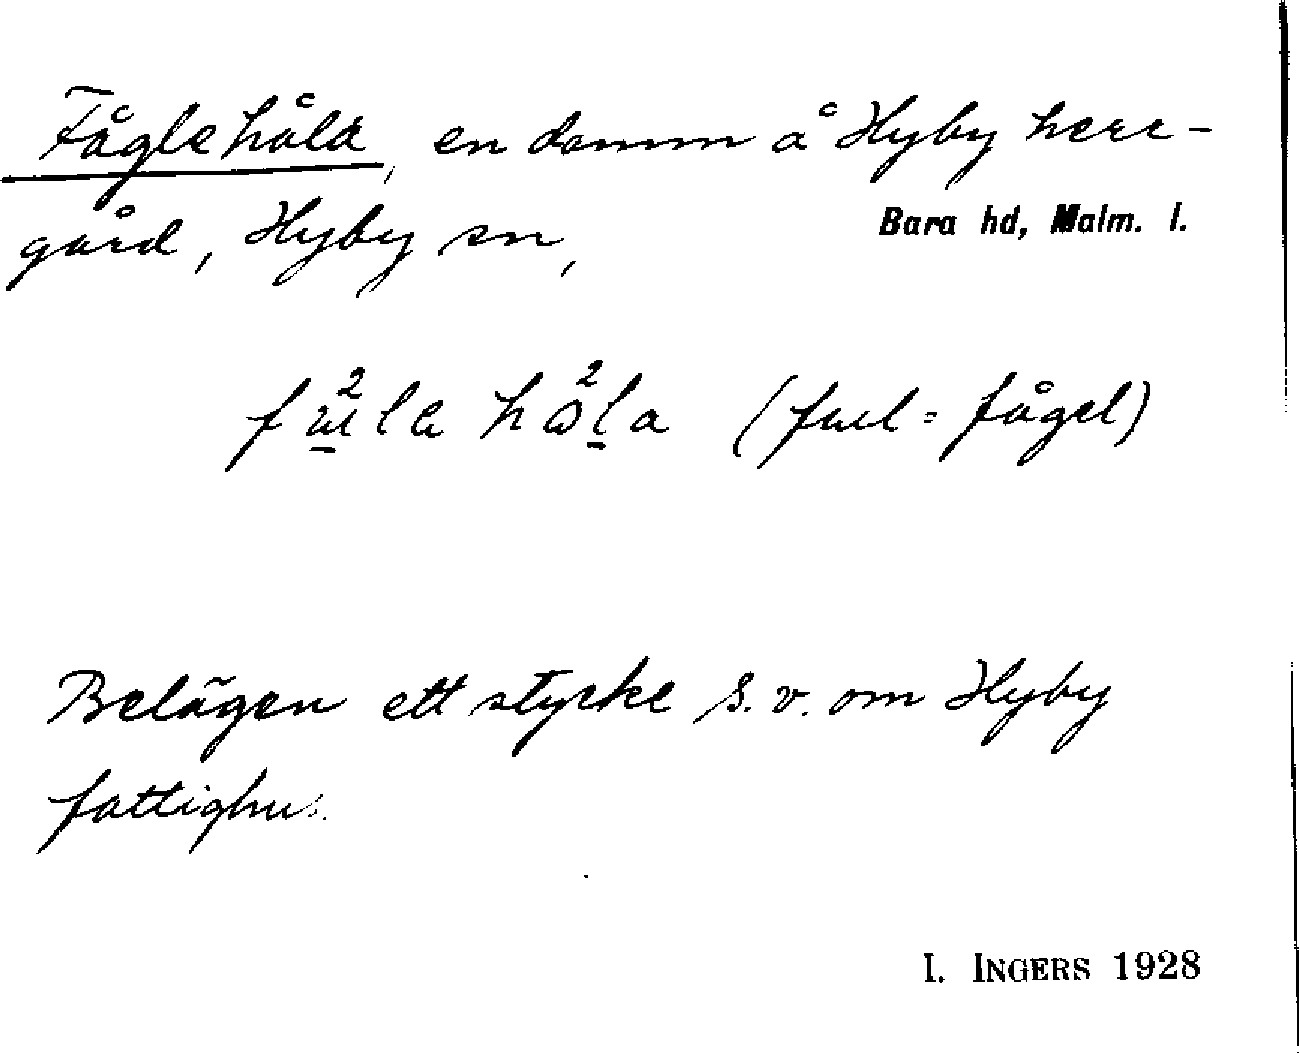 Fåglehåla, en damm å Hyby herr-
gård, Hyby sn,
Bara hd, Malm. l.
(fuel = fågel)
Belägen ett stycke s.v. om Hyby
fattighus.
I. INGERS 1928